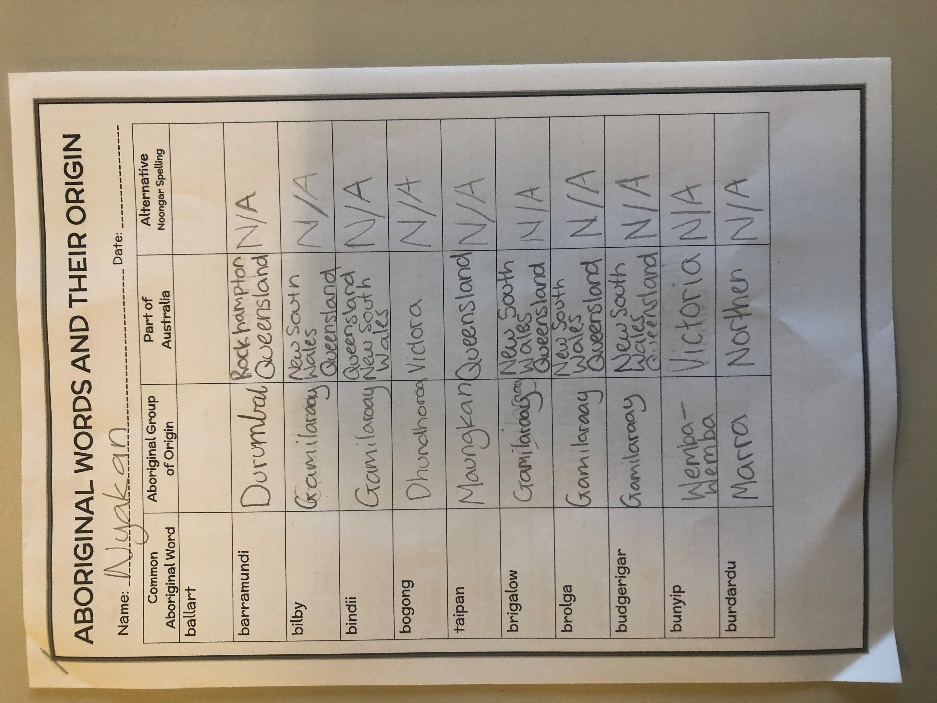 ABORIGINAL WORDS AND THEIR ORIGIN
Name: Nyakan Date:
Common Aboriginal Word
Aboriginal Group of Origin
Part of Australia
Alternative Noongar Spelling
ballart
barramundi Durumbal Rockhampton Queensland N/A
bilby Gamilaraay New South Wales Queensland N/A
bindii Gamilaraay Queensland New South Wales N/A
bogong Victora N/A
taipan Queensland N/A
brigalow New South Wales Queensland N/A
brolga Gamilaraay New South Wales Queensland N/A
budgerigar Gamilaraay New South Wales Queensland N/A
bunyip Wemba-Wemba Victoria N/A
burdardu Marra Northen N/A